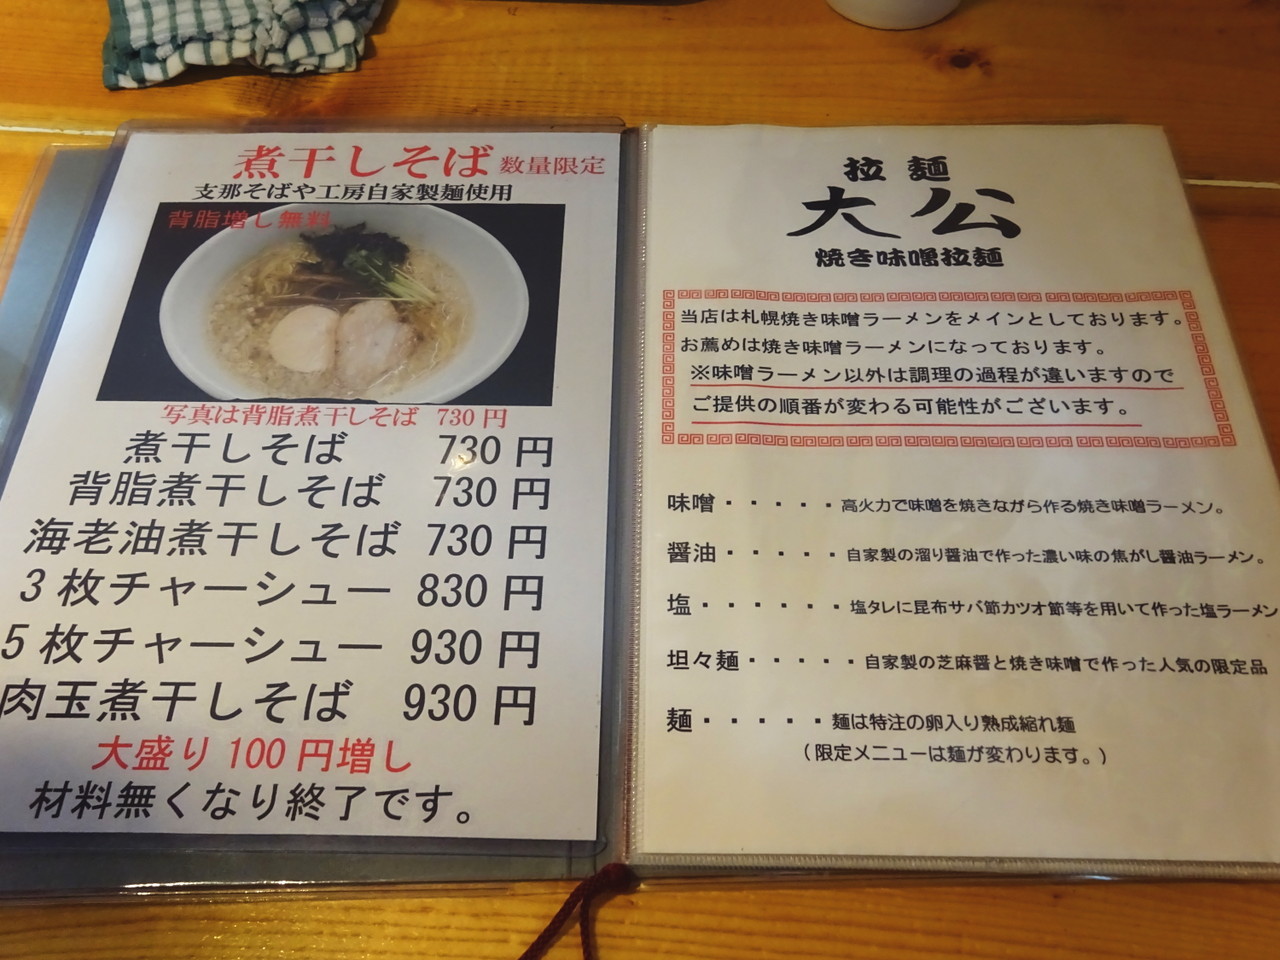 煮干しそば 数量限定
支那そばや工房自家製麺使用
背脂増し無料
写真は背脂煮干しそば 730 円
煮干しそば 730 円
背脂煮干しそば 730 円
海老油煮干しそば 730 円
3 枚チャーシュー 830 円
5 枚チャーシュー 930 円
肉玉煮干しそば 930 円
大盛り 100 円増し
材料無くなり終了です。
拉麺
大公
焼き味噌拉麺
当店は札幌焼き味噌ラーメンをメインとしております。
お薦めは焼き味噌ラーメンになっております。
※味噌ラーメン以外は調理の過程が違いますので
ご提供の順番が変わる可能性がございます。
味噌・・・・・高火力で味噌を焼きながら作る焼き味噌ラーメン。
醤油・・・・・自家製の溜り醤油で作った濃い味の焦がし醤油ラーメン。
塩・・・・・・塩タレに昆布サバ節カツオ節等を用いて作った塩ラーメン
坦々麺・・・・・自家製の芝麻醤と焼き味噌で作った人気の限定品
麺・・・・・麺は特注の卵入り熟成縮れ麺
（限定メニューは麺が変わります。）